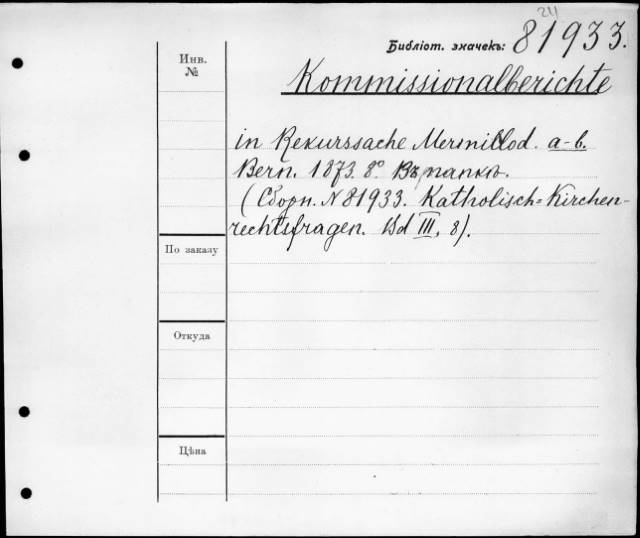 211
Библіот. значекъ: 81933.
Инв.
№
Kommissionalberichte
in Rekurssache Mermillod. a-b.
Bern. 1873. 8° Въ папкѣ.
(Сборн. № 81933. Katholisch=Kirchen-
rechtsfragen. Bd III, 8).
По заказу
Откуда
Цѣна